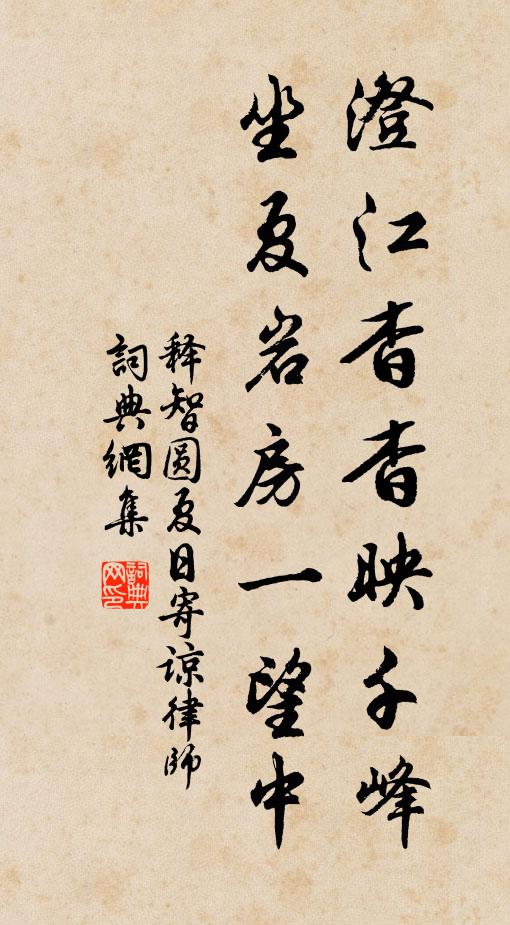 澄江杳杳映千峰
坐夏岩房一望中
释智圆夏日寄谅律师
詞典網集
詞典网印